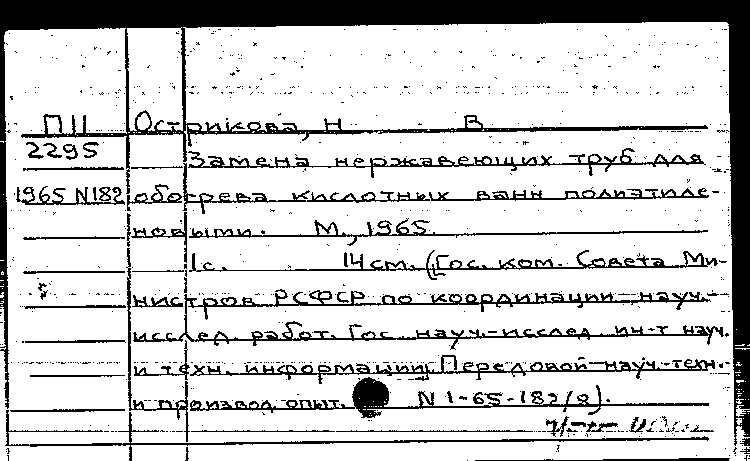 П11 Острикова, Н В
2295 Замена нержавеющих труб для
1965 N182 обогрева кислотных ванн полиэтиле-
новыми. М., 1965.
1с. 14см. (Гос. ком. Совета Ми-
нистров РСФСР по координации науч.-
исслед. работ. Гос. науч.-исслед. ин-т науч.
и техн. информации. Передовой науч.-техн.
и производ. опыт. N 1-65-182/8).